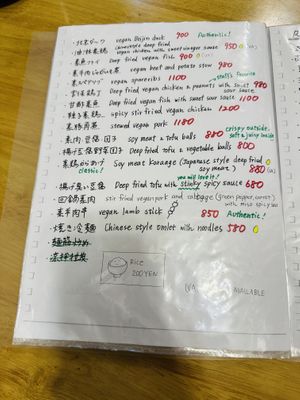 ・北京ダック vegan Beijin duck 900 Authentic!
・油淋素鶏 (Cantonese deep fried
vegan chicken with sweet vinegar sauce 950
・素魚フライ Deep fried vegan fish 950
・素牛肉じゃが vegan beef and potato stew 980
・素スペアリブ vegan spareribs 1100 staff's favorite
・宮保素鶏丁 Deep fried vegan chicken & peanuts with sweet sour sauce 980
Deep fried vegan fish with sweet sour sauce 1100
・辣子素鶏 spicy stir fried vegan chicken 1200
・素豚角煮 stewed vegan pork 1180
crispy outside,
soft & juicy inside
・素肉・豆腐団子 Soy meat & tofu balls 880
・揚げ豆腐野菜団子 Deep fried tofu & vegetable balls 800
・素鶏からあげ Soy meat Karaage (Japanese style deep fried soy meat) 880
classic!
you will love it!
・揚げ臭い豆腐 Deep fried tofu with stinky spicy sauce 680
・回鍋素肉 stir fried vegan pork and cabbage (green pepper, carrot) with miso spicy
・素羊肉串 vegan lamb stick 850 Authentic!
・焼き冷麺 Chinese style omlet with noodles 580
Rice
200 YEN
AVAILABLE